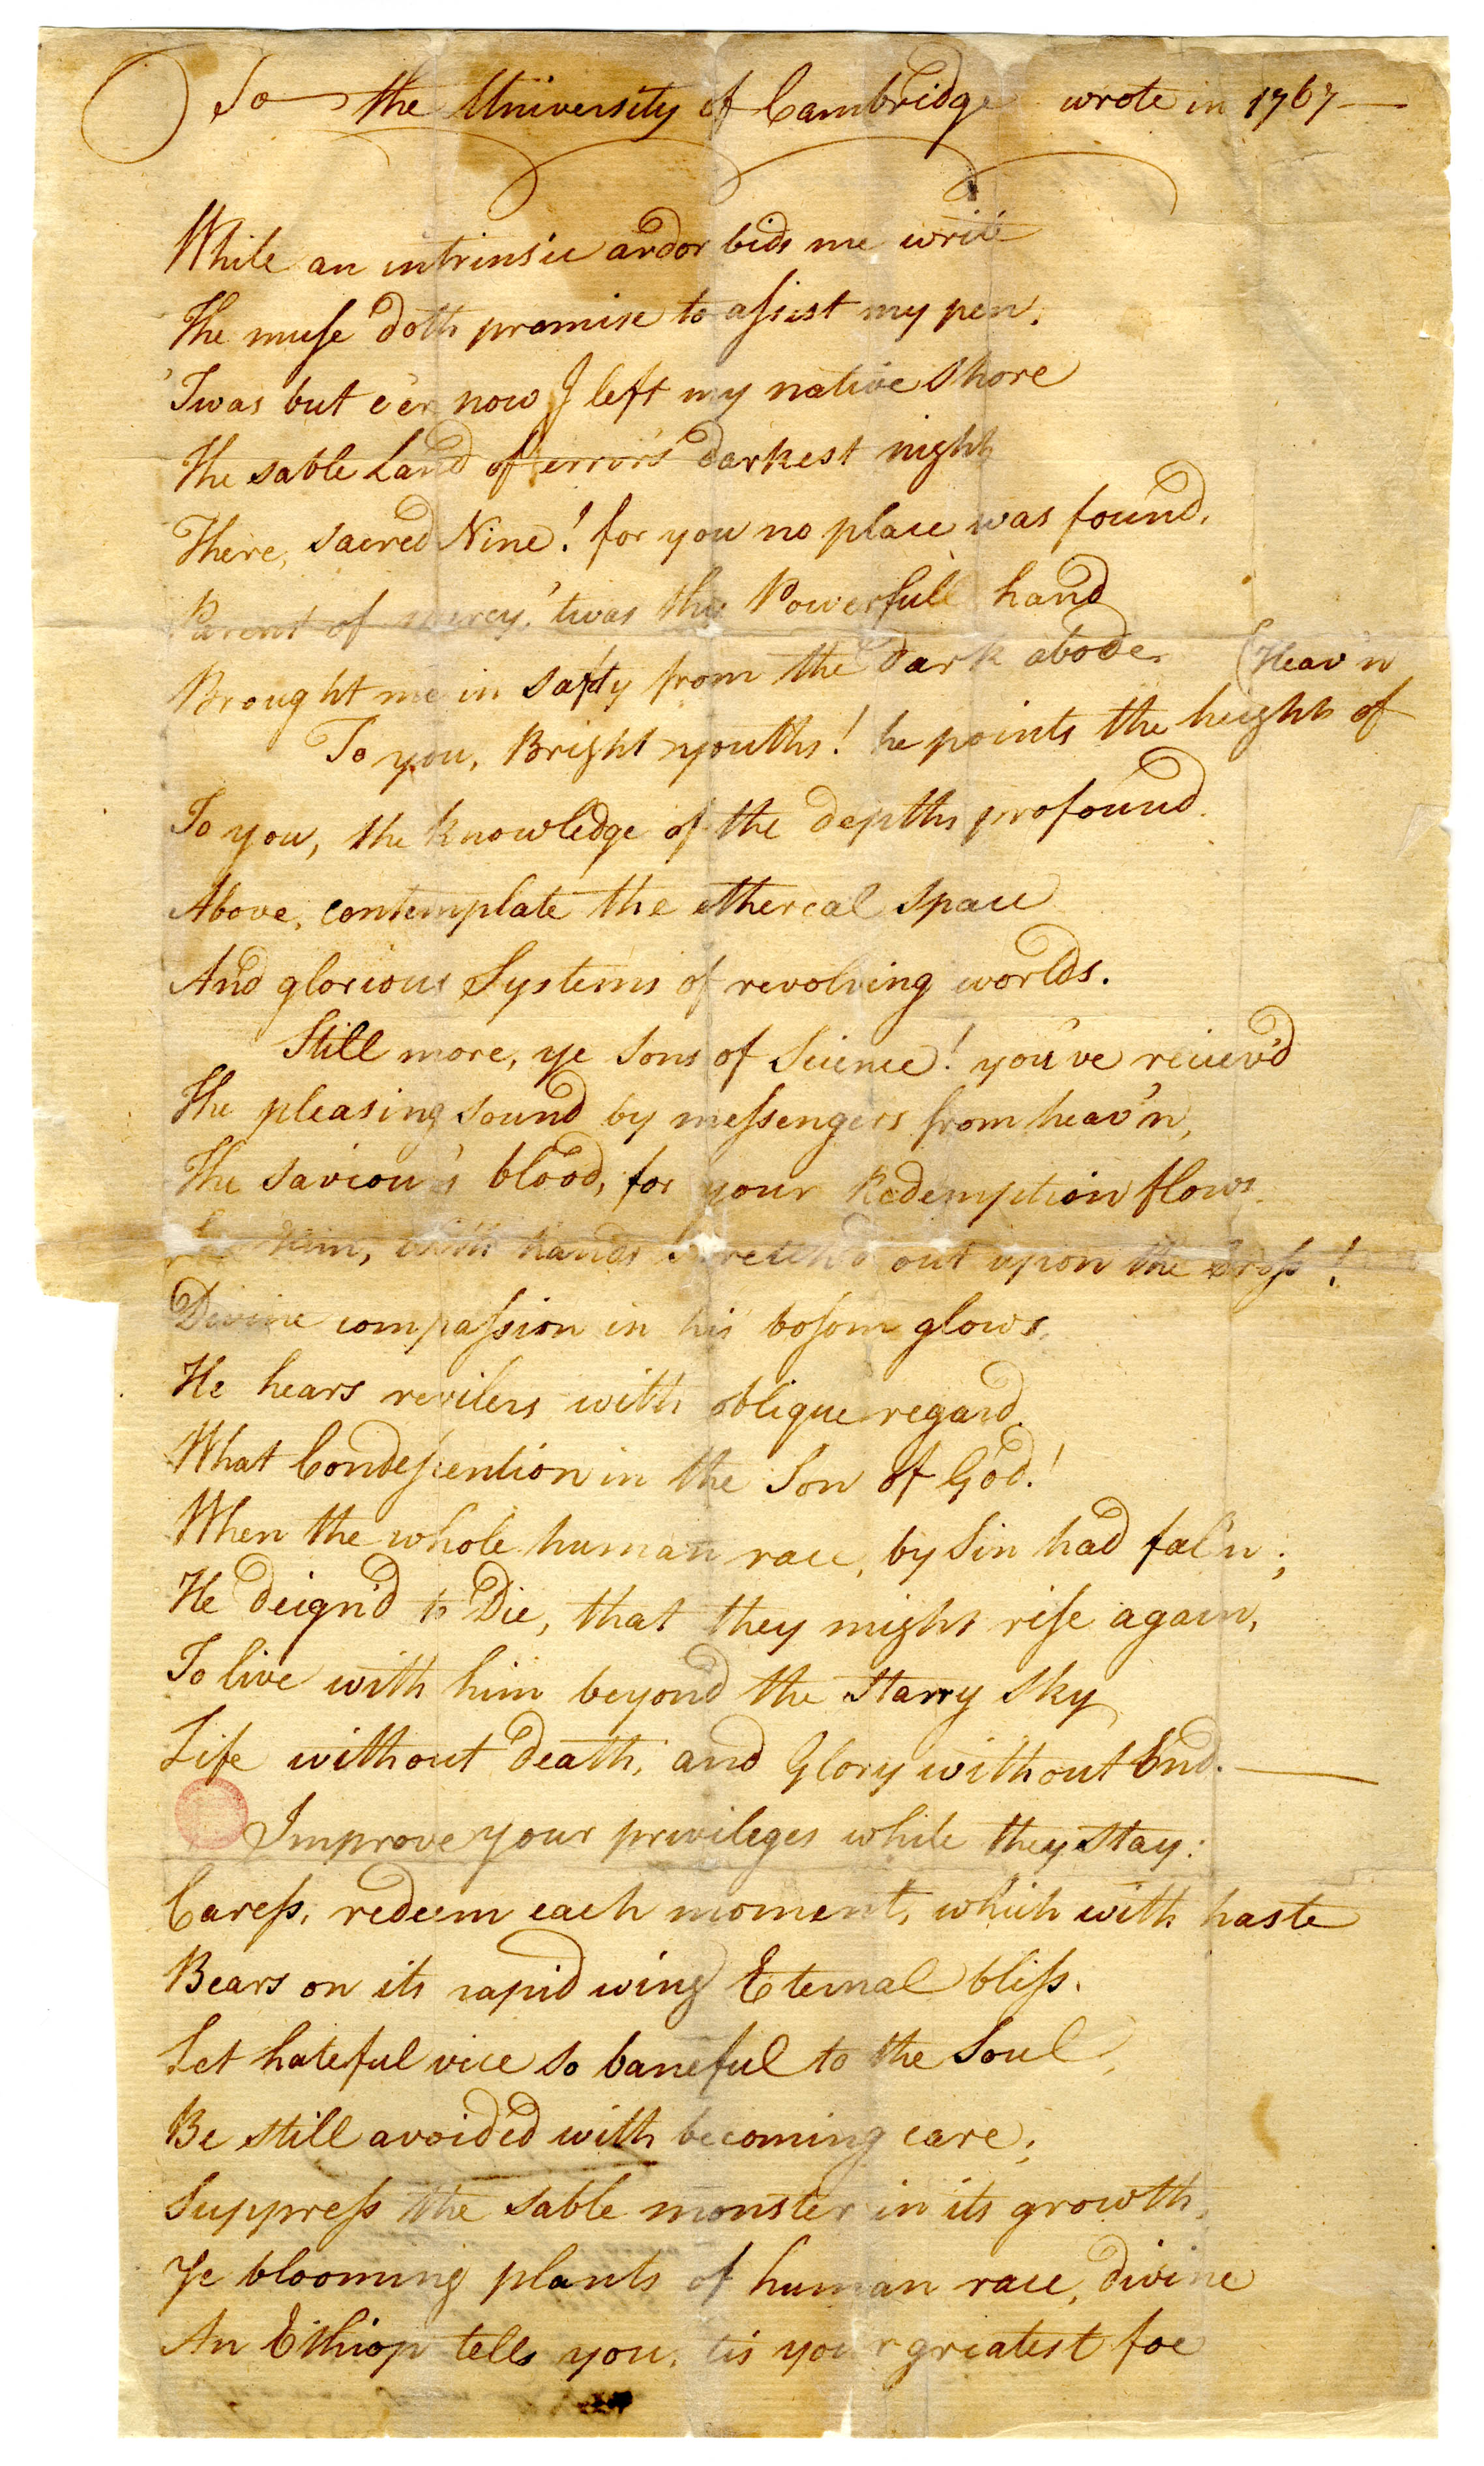 To the University of Cambridge wrote in 1767
While an intrinsic ardor bids me write
The muse doth promise to assist my pen.
'Twas but e'en now I left my native Shore
The sable Land of error's darkest night
There, sacred Nine! for you no place was found,
Parent of mercy, 'twas thy Powerfull hand
Brought me in safty from the dark abode.
To you, Bright youths! he points the heights of (Heav'n
To you, the knowledge of the depths profound.
Above, contemplate the ethereal Space
And glorious Systems of revolving worlds.
Still more, ye Sons of Science! you've reciev'd
The pleasing sound by messengers from heav'n,
The Saviour's blood, for your Redemption flows.
him, with hands stretch'd out upon the Cross!
Divine compassion in his bosom glows.
He hears revilers with oblique regard.
What Condescention in the Son of God!
When the whole human race, by Sin had fal'n;
He deign'd to Die, that they might rise again,
To live with him beyond the Starry Sky
Life without death, and Glory without End.
Improve your privileges while they Stay:
Caress, redeem each moment, which with haste
Bears on its rapid wing Eternal bliss.
Let hateful vice so baneful to the Soul,
Be still avoided with becoming care;
Suppress the sable monster in its growth,
Ye blooming plants of human race, divine
An Ethiop tells you, tis your greatest foe